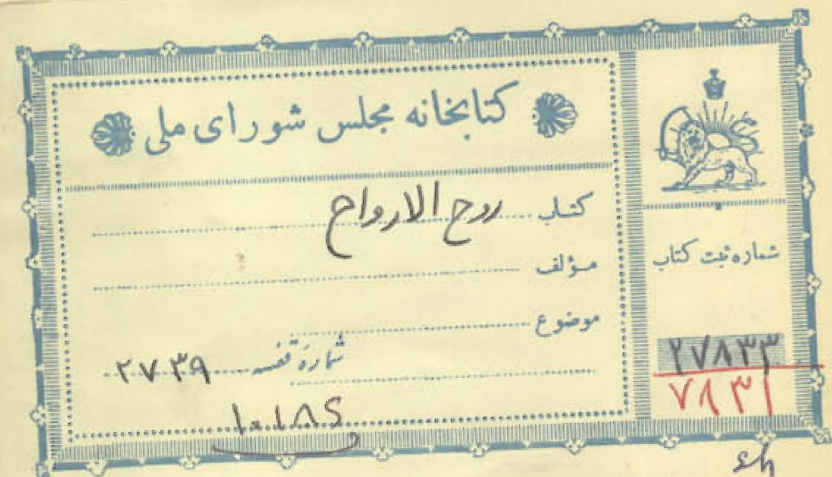 کتابخانه مجلس شورای ملی
کتاب روح الارواح
مؤلف
موضوع
شماره قفسه ۲۷۳۹
شماره ثبت کتاب
۲۷۸۳۳
۷۸۳۱